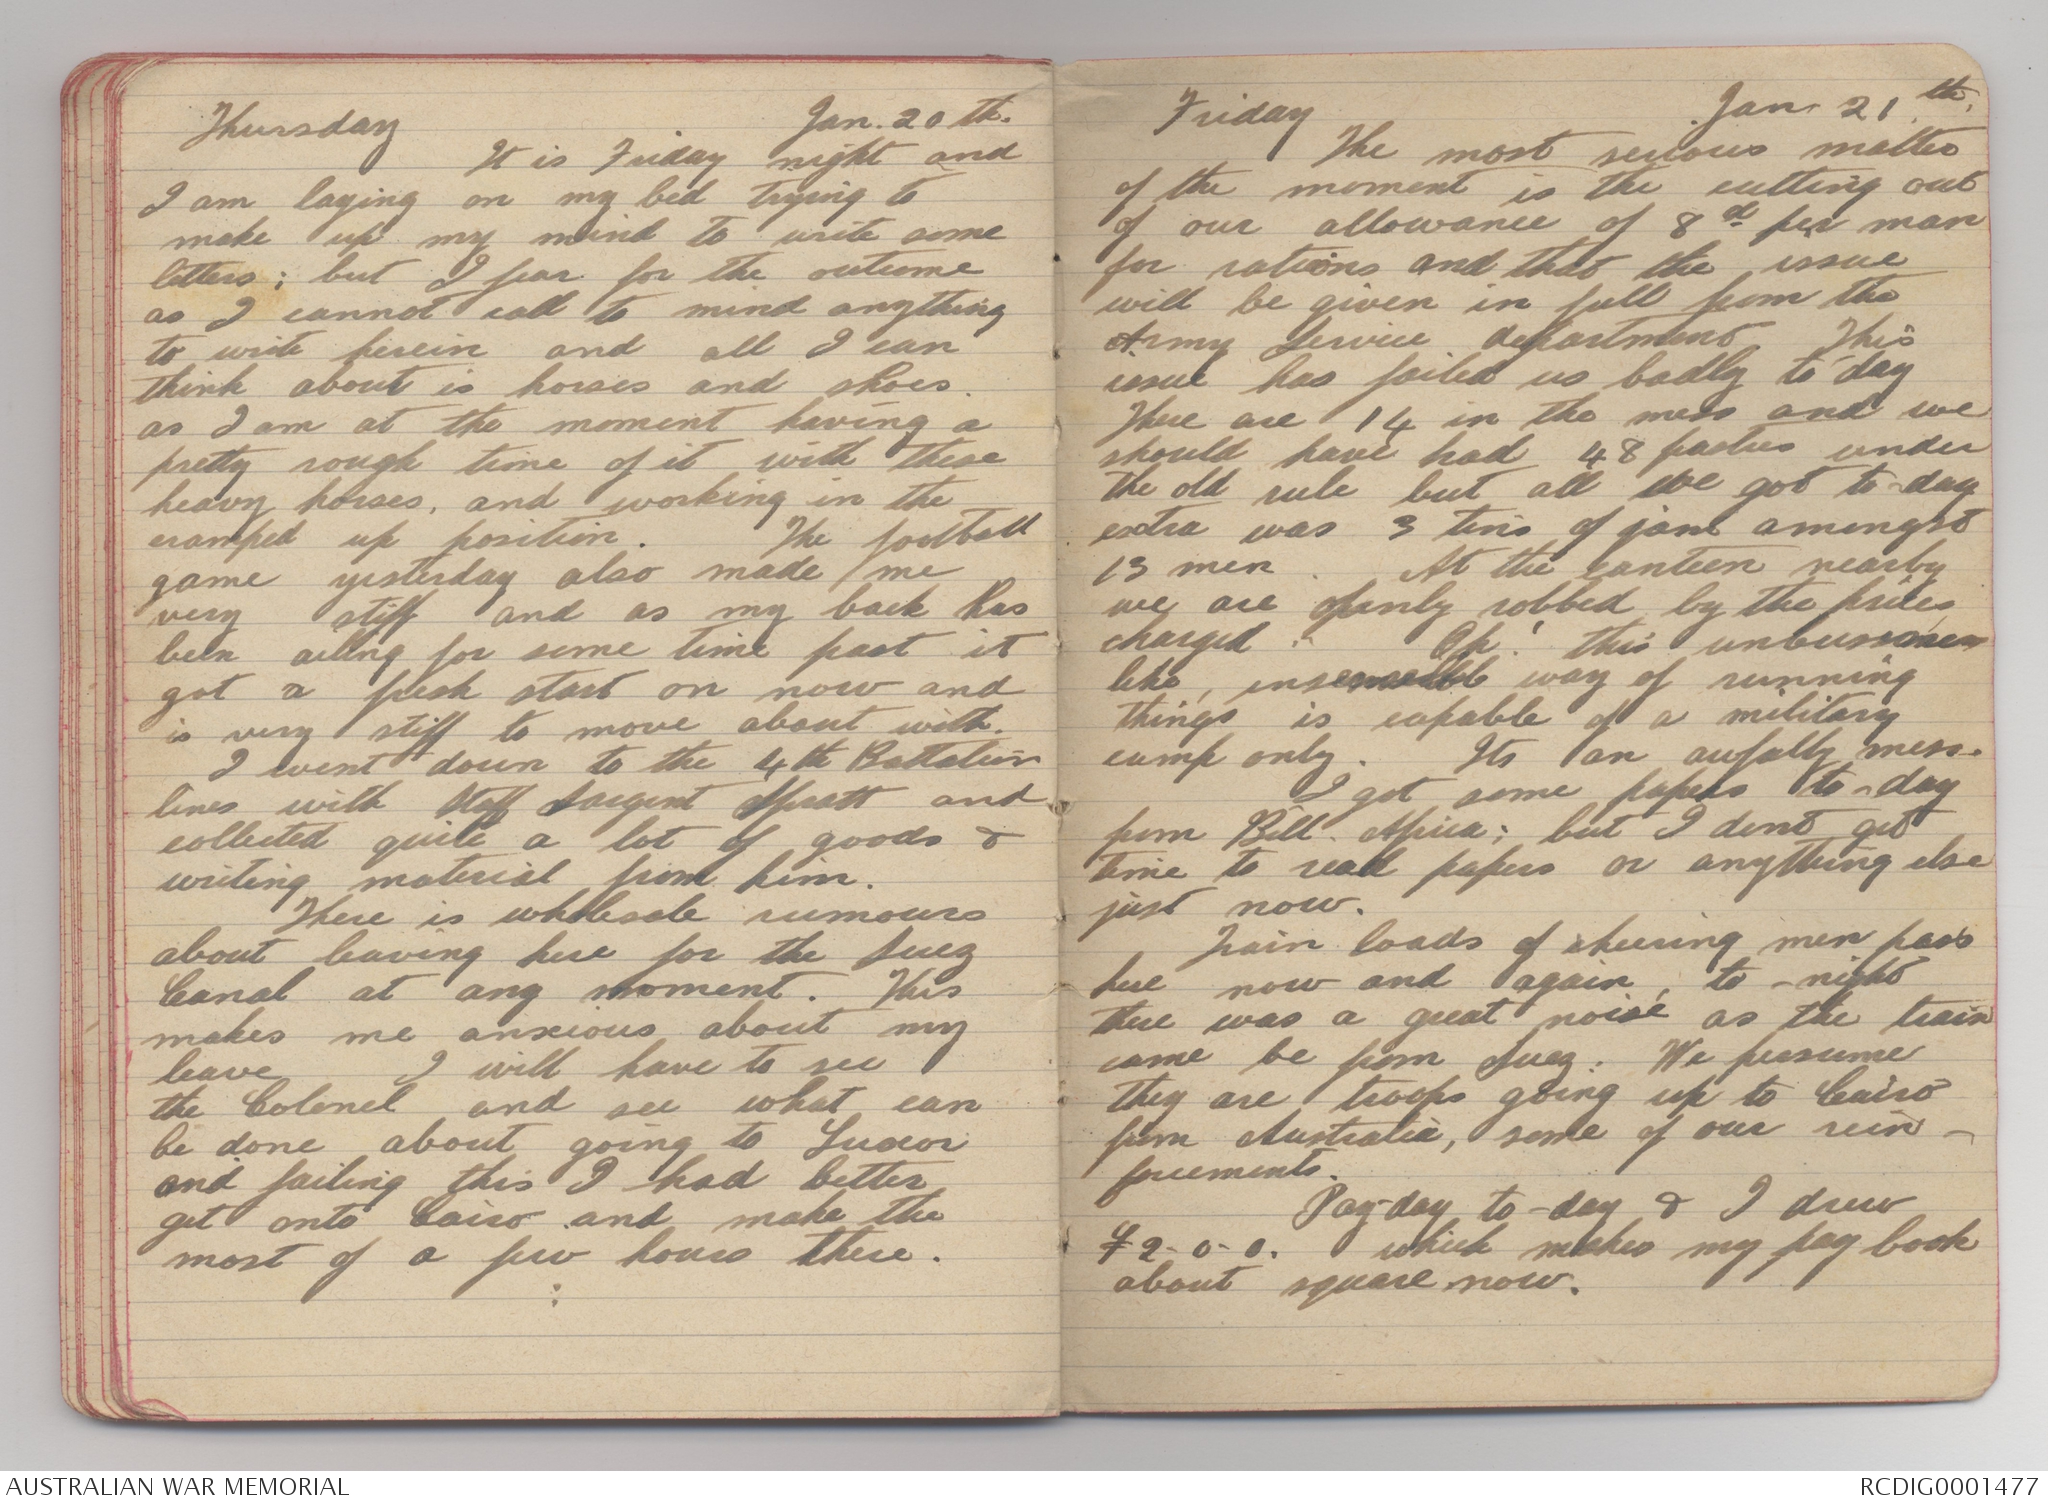 Thursday Jan. 20th.
It is Friday night and
I am laying on my bed trying to
make up my mind to write some
letters; but I fear for the outcome
as I cannot call to mind anything
to write herein and all I can
think about is horses and shoes.
as I am at the moment having a
pretty rough time of it with these
heavy horses, and working in the
cramped up position. The football
game yesterday also made me
very stiff and as my back has
been ailing for some time past it
got a fresh start on now and
is very stiff to move about with.
I went down to the 4th Battalion
lines with Staff Sargent Spratt and
collected quite a lot of goods &
writing material from him.
There is wholesale rumours
about leaving here for the Suez
Canal at any moment. This
makes me anxious about my
leave I will have to see
the Colonel and see what can
be done about going to Luxor
and failing this I had better
get onto Cairo and make the
most of a few hours there.
Friday Jan. 21th.
The most serious matter
of the moment is the cutting out
of our allowance of 8d per man
for rations and that the issue
will be given in full from the
Army Service department This
issue has failed us badly to day
There are 14 in the mess and we
should have had 48 pasties under
the old rule but all we got to-day
extra was 3 tins of jam amongst
13 men. At the canteen nearby
we are openly robbed by the prices
charged. Oh! this unbussiness
like, way of running
things is capable of a military
camp only. Its an awfully mess.
I got some papers to-day
from Bill. Africa; but I dont get
time to read papers or anything else
just now.
Train loads of cheering men pass
here now and again, to-night
there was a great noise as the train
came be from Suez. We presume
they are troops going up to Cairo
from Australia, some of our rein-
forcements.
Pay-day to-day & I drew
£2-0-0. which makes my pay book
about square now.
AUSTRALIAN WAR MEMORIAL RCDIG0001477